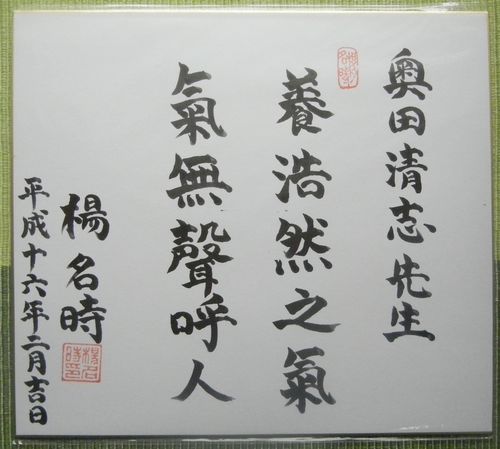 奥田清志先生
養浩然之氣
氣無聲呼人
楊名時
平成十六年二月吉日
楊名時印